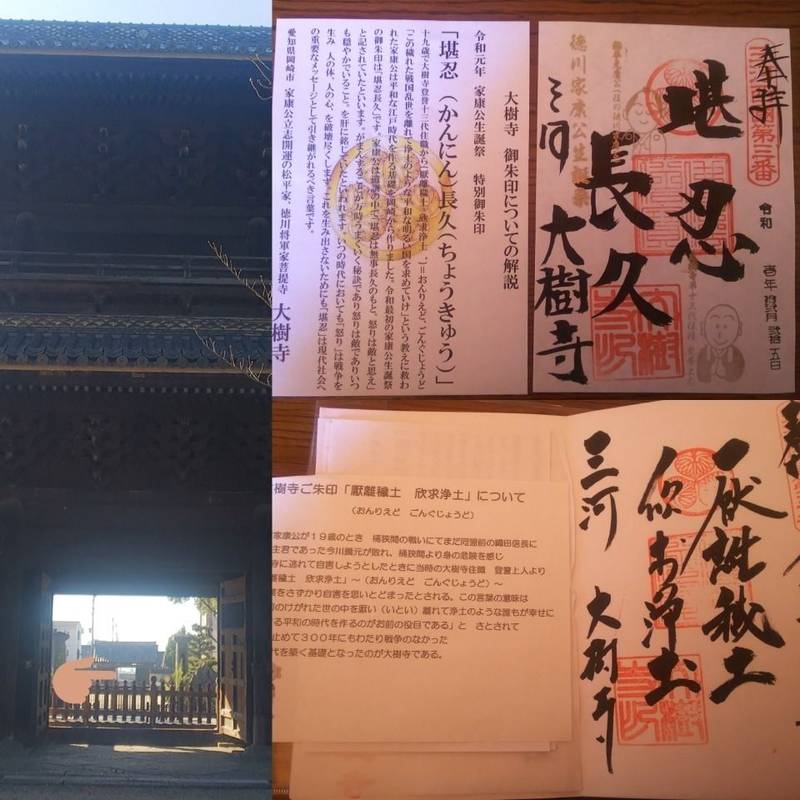 令和元年 家康公生誕祭 特別御朱印
大樹寺 御朱印についての解説
「堪忍(かんにん)長久(ちょうきゅう)」
十九歳で大樹寺登誉十三代住職から「厭離穢土 欣求浄土」=おんりえど、ごんぐじょうど
「この穢れた戦国乱世を離れて浄土のような平和な明るい国を求めていけ」という教えに救わ
れた家康公は平和な江戸時代を作る基礎を岡崎から作りました。令和最初の家康公生誕祭
の御朱印は、「堪忍長久」です。家康公は遺訓の中で「堪忍は無事長久のもと、怒りは敵と思え」
と記されていたといいます。がまんすることが万時うまくいく秘訣であり怒りは敵でありいつ
も穏やかでいること。を肝に銘じていたといわれます。いつの時代においても「怒り」は戦争を
生み 人の体、人の心、を破壊尽くします。これを生み出さないためにも「堪忍」は現代社会へ
の重要なメッセージとして引き継がれるべき言葉です。
愛知県岡崎市 家康公立志開運の松平家、徳川将軍家菩提寺 大樹寺
奉拝
令和 壱年 拾弐月 弐拾五日
堪忍
長久
徳川家康公生誕祭
三河 大樹寺
樹寺ご朱印「厭離穢土 欣求浄土」について
(おんりえど ごんぐじょうど)
家康公が19歳のとき 桶狭間の戦いにてまだ同盟前の織田信長に
主君であった今川義元が敗れ、桶狭間より身の危険を感じ
寺に逃れて自害しようとしたときに当時の大樹寺住職 登誉上人より
離穢土 欣求浄土」~(おんりえど ごんぐじょうど)~
葉をさずかり自害を思いとどまったとされる。この言葉の意味は
のけがれた世の中を厭い(いとい)離れて浄土のような誰もが幸せに
る平和の時代を作るのがお前の役目である」と さとされて
止めて300年にもわたり戦争のなかった
代を築く基礎となったのが大樹寺である。
厭離穢土
欣求浄土
三河 大樹寺